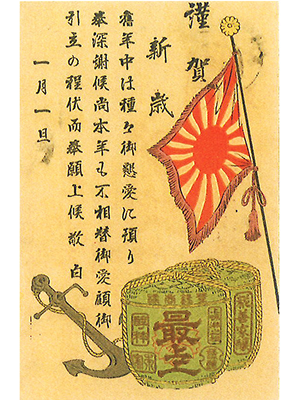 謹賀
新歳
舊年中は種々御懸愛に預り
奉深謝候尚本年も不相替御愛顧御
引立の程伏而奉願上候敬白
一月一旦
最上